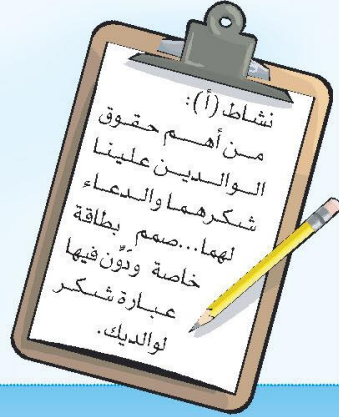 نشاط (أ):
من أهم حقوق
الوالدين علينا
شكرهما والدعاء
لهما...صمم بطاقة
خاصة ودَوِّن فيها
عبارة شكر
لوالديك.